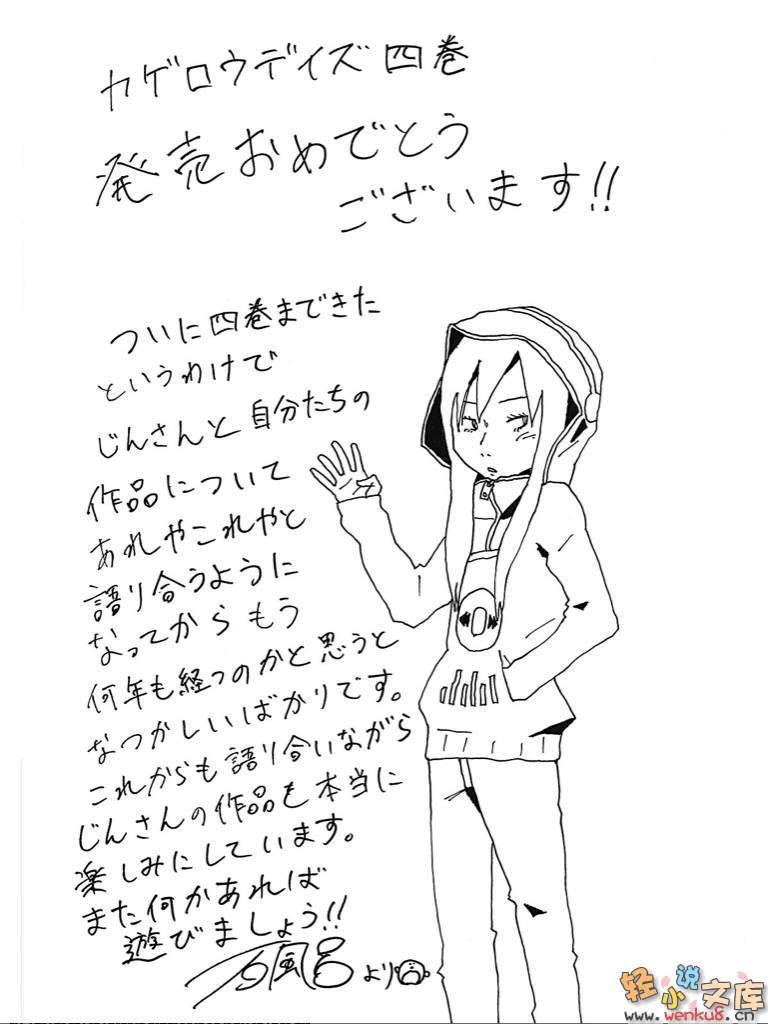 カゲロウデイズ四巻
発売おめでとう
ございます!!
ついに四巻まできた
というわけで
じんさんと自分たちの
作品について
あれやこれやと
語り合うように
なってからもう
何年も経つのかと思うと
なつかしいばかりです。
これからも語り合いながら
じんさんの作品を本当に
楽しみにしています。
また何かあれば
遊びましょう!!
石風呂より
轻小说文库
www.wenku8.cn